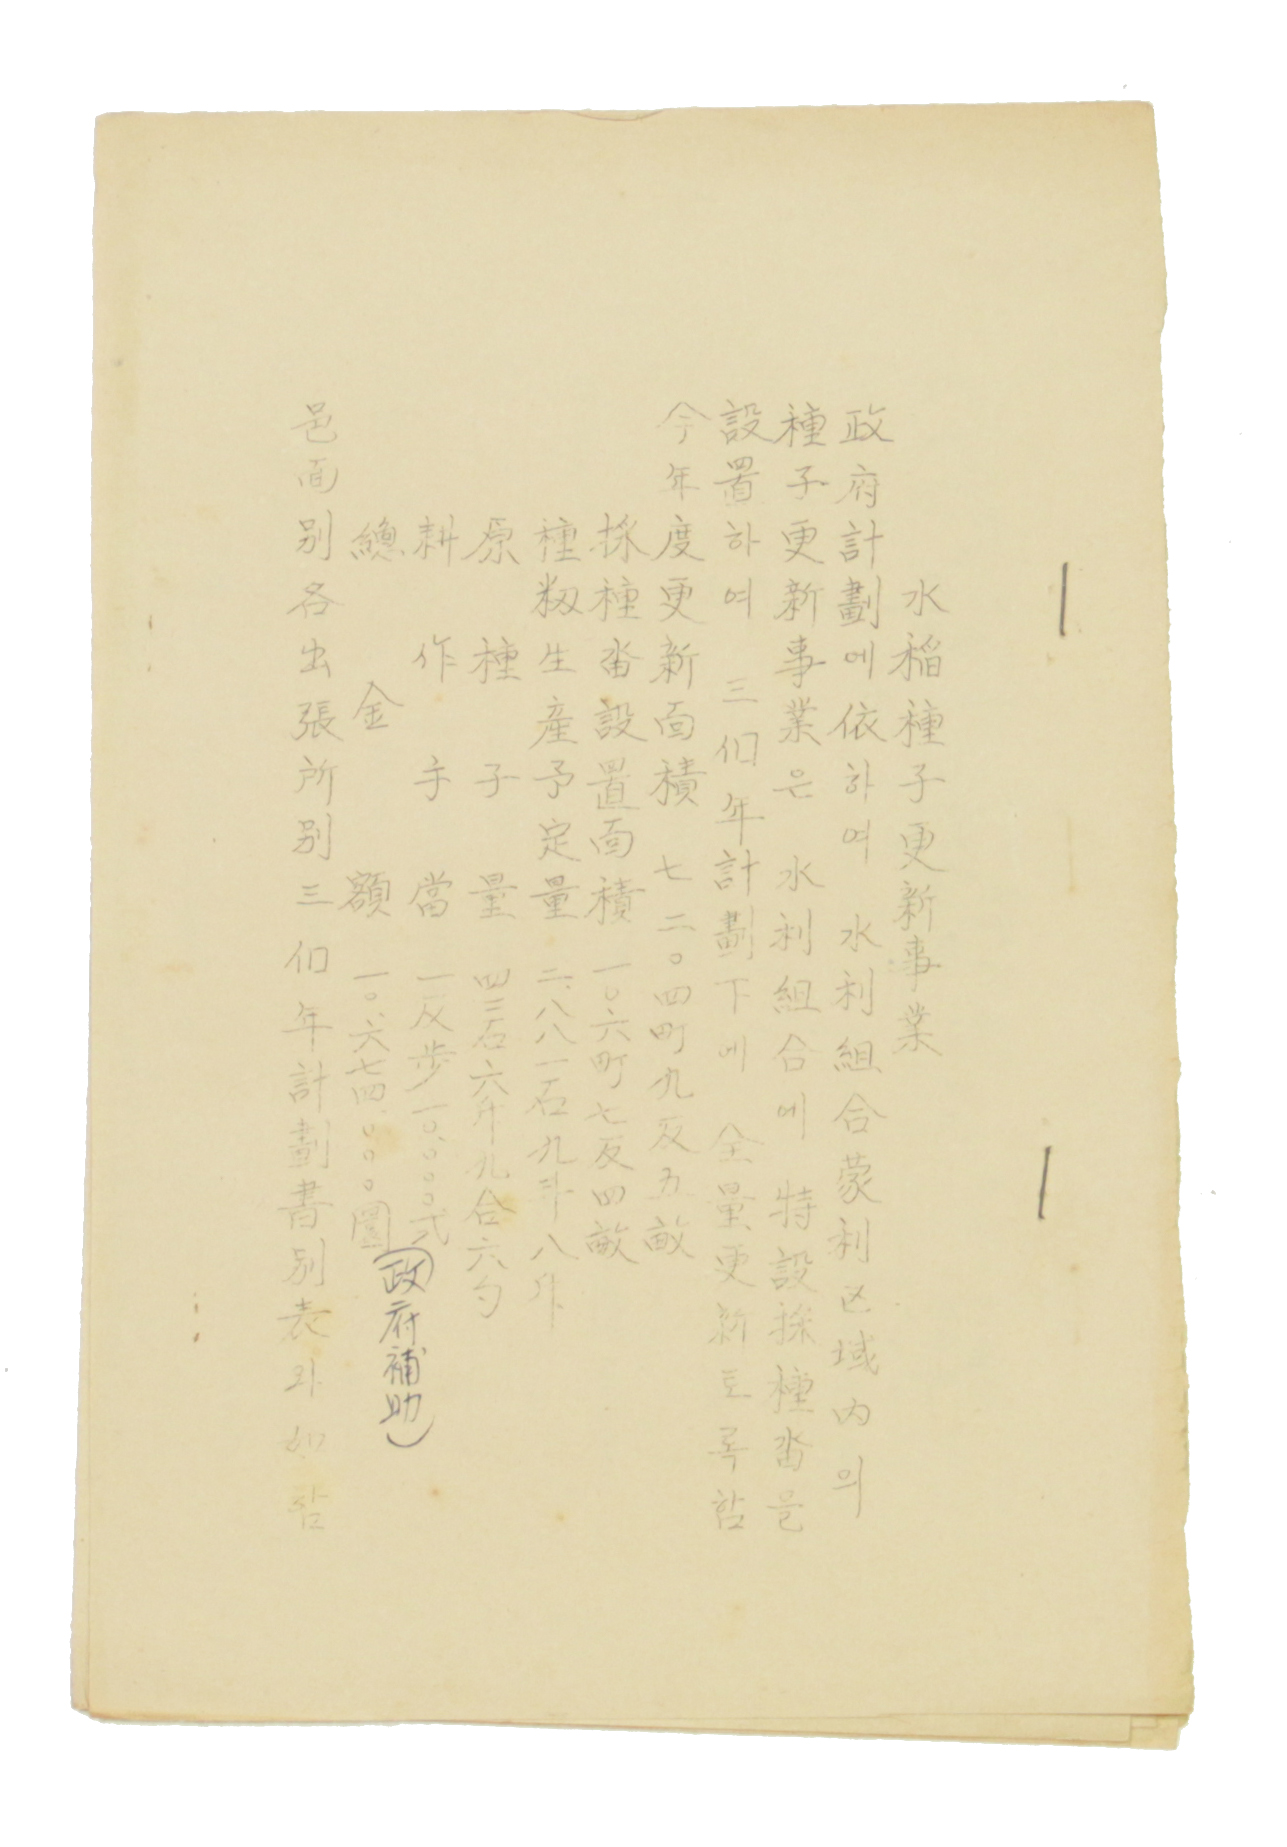 水稲種子更新事業
政府計劃에依하여 水利組合蒙利区域内의
種子更新事業은 水利組合에 特設採種畓을
設置하여 三個年計劃下에 全量更新토록함
今年度更新面積 七二〇四町九反五畝
採種畓設置面積 一〇六町七反四畝
種籾生産予定量 二、八八一石九斗八升
原種子量 四三石六升九合六勺
耕作手当 一反歩一〇、〇〇〇式
總金額 一〇、六七四、〇〇〇圜
(政府補助)
邑面別各出張所別三個年計劃書別表와如함